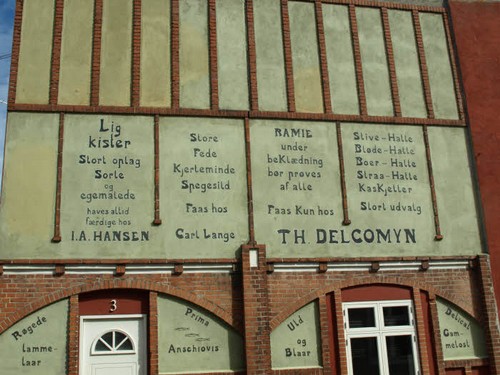 Lig
kisler
Stort oplag
Sorte
og
egemalede
haves altid
færdige hos
I.A. HANSEN
Store
Fede
Kjerteminde
Spegesild
Faas hos
Carl Lange
RAMIE
under
beklædning
bør prøves
af alle
Faas Kun hos
Stive-Halle
Bløde-Halle
Boer-Halle
Straa-Halle
Kaskjeller
Stort udvalg
TH. DELCOMYN
Røgede
lamme-
laar
3
Prima
Anschiovis
Uld
og
Blaar
Delual
Gam-
melost